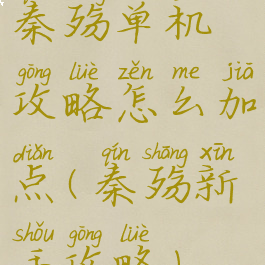 秦殇单机
gōng lüè zěn me jiā
攻略怎么加
diǎn qín shāng xīn
点(秦殇新
shǒu gōng lüè
手攻略)